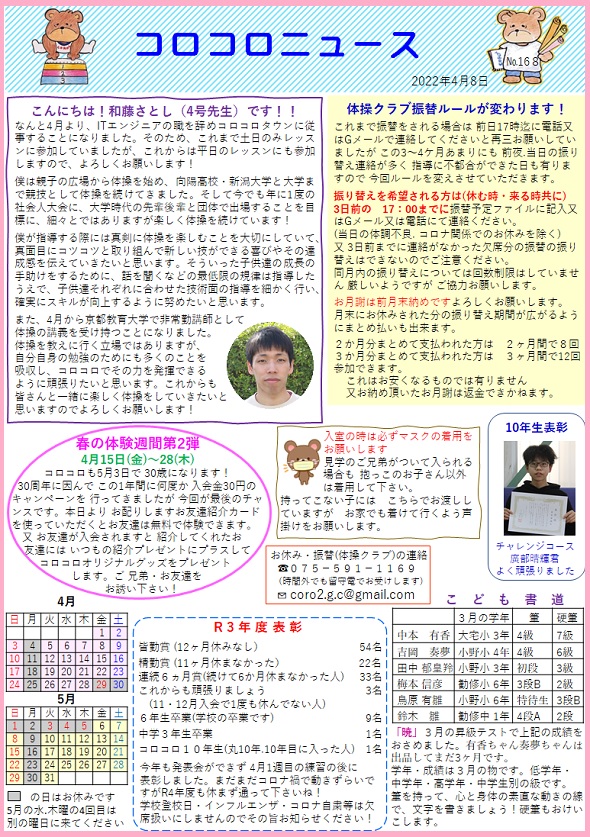 コロコロニュース
No.168
2022年4月8日
こんにちは！和藤さとし（4号先生）です！！
なんと4月より、ITエンジニアの職を辞めコロコロタウンに従
事することになりました。そのため、これまで土日のみレッス
ンに参加していましたが、これからは平日のレッスンにも参加
しますので、よろしくお願いします！
僕は親子の広場から体操を始め、向陽高校・新潟大学と大学ま
で競技として体操を続けてきました。そして今でも年に1度の
社会人大会に、大学時代の先輩後輩と団体で出場することを目
標に、細々とではありますが楽しく体操を続けています！
僕が指導する際には真剣に体操を楽しむことを大切にしていて、
真面目にコツコツと取り組んで新しい技ができる喜びやその達
成感を伝えていきたいと思います。そういった子供達の成長の
手助けをするために、話を聞くなどの最低限の規律は指導した
うえで、子供達それぞれに合わせた技術面の指導を細かく行い、
確実にスキルが向上するように努めたいと思います。
また、4月から京都教育大学で非常勤講師として
体操の講義を受け持つことになりました。
体操を教えに行く立場ではありますが、
自分自身の勉強のためにも多くのことを
吸収し、コロコロでその力を発揮できる
ように頑張りたいと思います。これからも
皆さんと一緒に楽しく体操をしていきたいと
思いますのでよろしくお願いします！
体操クラブ振替ルールが変わります！
これまで振替をされる場合は 前日17時迄に電話又
はGメールで連絡してくださいと再三お願いしてい
ましたが この3～4ケ月あまりにも 前夜.当日の振り
替え連絡が多く 指導に不都合がでできた日も有りま
すので 今回ルールを変えさせていただきます。
振替りを希望される方は(休む時・来る時共に)
3日前の　17：00までに振替予定ファイルに記入又
はGメール又は電話にて連絡ください。
(当日の体調不良. コロナ関係でのお休みを除く)
又 3日前までに連絡がなかった欠席分の振替の振り
替えはできないのでご注意ください。
同月内の振り替えについては回数制限はしていませ
ん 厳しいようですが ご協力お願いします。
お月謝は前月末納めですよろしくお願いします。
月末にお休みされた分の振り替え期間が広がるよう
にまとめ払いも出来ます。
２か月分まとめて支払われた方は　２ヶ月間で８回
３か月分まとめて支払われた方は　３ヶ月間で12回
参加できます。
これはお安くなるものでは有りません
又お納め頂いたお月謝は返金できかねます。
春の体験週間第2弾
4月15日(金)～28(木)
コロコロも5月3日で 30歳になります！
30周年に因んで この1年間に何度か 入会金30円の
キャンペーンを 行ってきましたが 今回が最後のチャ
ンスです。本日より お配りしますお友達紹介カード
を使っていただくとお友達は無料で体験できます。
又 お友達が入会されますと 紹介してくれたお
友達には いつもの紹介プレゼントにプラスして
コロコロオリジナルグッズをプレゼント
します。ご 兄弟・お友達を
お誘い下さい！
入室の時は必ずマスクの着用を
お願いします
見学のご兄弟がついて入られる
場合も 抱っこのお子さん以外
は着用して下さい。
持ってこない子には　こちらでお渡しし
ていますが　お家でも着けて行くよう声
掛けをお願いします。
10年生表彰
チャレンジコース
廣部晴輝君
よく頑張りました
お休み・振替(体操クラブ)の連絡
☎０７５－５９１－１１６９
（時間外でも留守電でお受けします）
✉ coro2.g.c@gmail.com
4月
日 月 火 水 木 金 土
1 2
3 4 5 6 7 8 9
10 11 12 13 14 15 16
17 18 19 20 21 22 23
24 25 26 27 28 29 30
5月
日 月 火 水 木 金 土
1 2 3 4 5 6 7
8 9 10 11 12 13 14
15 16 17 18 19 20 21
22 23 24 25 26 27 28
29 30 31
の日はお休みです
5月の水.木曜の4回目は
別の曜日に来てください
Ｒ３年度表彰
皆勤賞（12ヶ月休みなし） 54名
精勤賞（11ヶ月休まなかった） 22名
連続6ヵ月賞(続けて6か月休まなかった人） 33名
これからも頑張りましょう 3名
（11・12月入会で1度も休んでない人）
６年生卒業(学校の卒業です） 9名
中学３年生卒業 1名
コロコロ１０年生(丸10年.10年目に入った人） 1名
今年も発表会ができず 4月1週目の練習の後に
表彰しました。まだまだコロナ禍で動きずらいで
すがR4年度も休まず通って下さいね！
学校登校日・インフルエンザ・コロナ自粛等は欠
席扱いにしませんのでその旨お知らせください！
こ　ど　も　書　道
３月の学年 筆 硬筆
中本　有香 大宅小 3年 4級 7級
吉岡　奏夢 小野小 4年 4級 6級
田中 郁皇羚 小野小 3年 初段 3級
梅本 信彦 勧修小 6年 3段B 2級
鳥原 有雛 小野小 6年 特待生 3段B
鈴木　雛 勧修中 1年 4段A 2段
「暁」３月の昇級テストで上記の成績を
おさめました。有香ちゃん奏夢ちゃんは
出品してまだ3ヶ月です。
学年・成績は３月の物です。低学年・
中学年・高学年・中学生別の級です。
筆を持って、心と身体の素直な動きの線
で、文字を書きましょう！硬筆もおけい
こします。